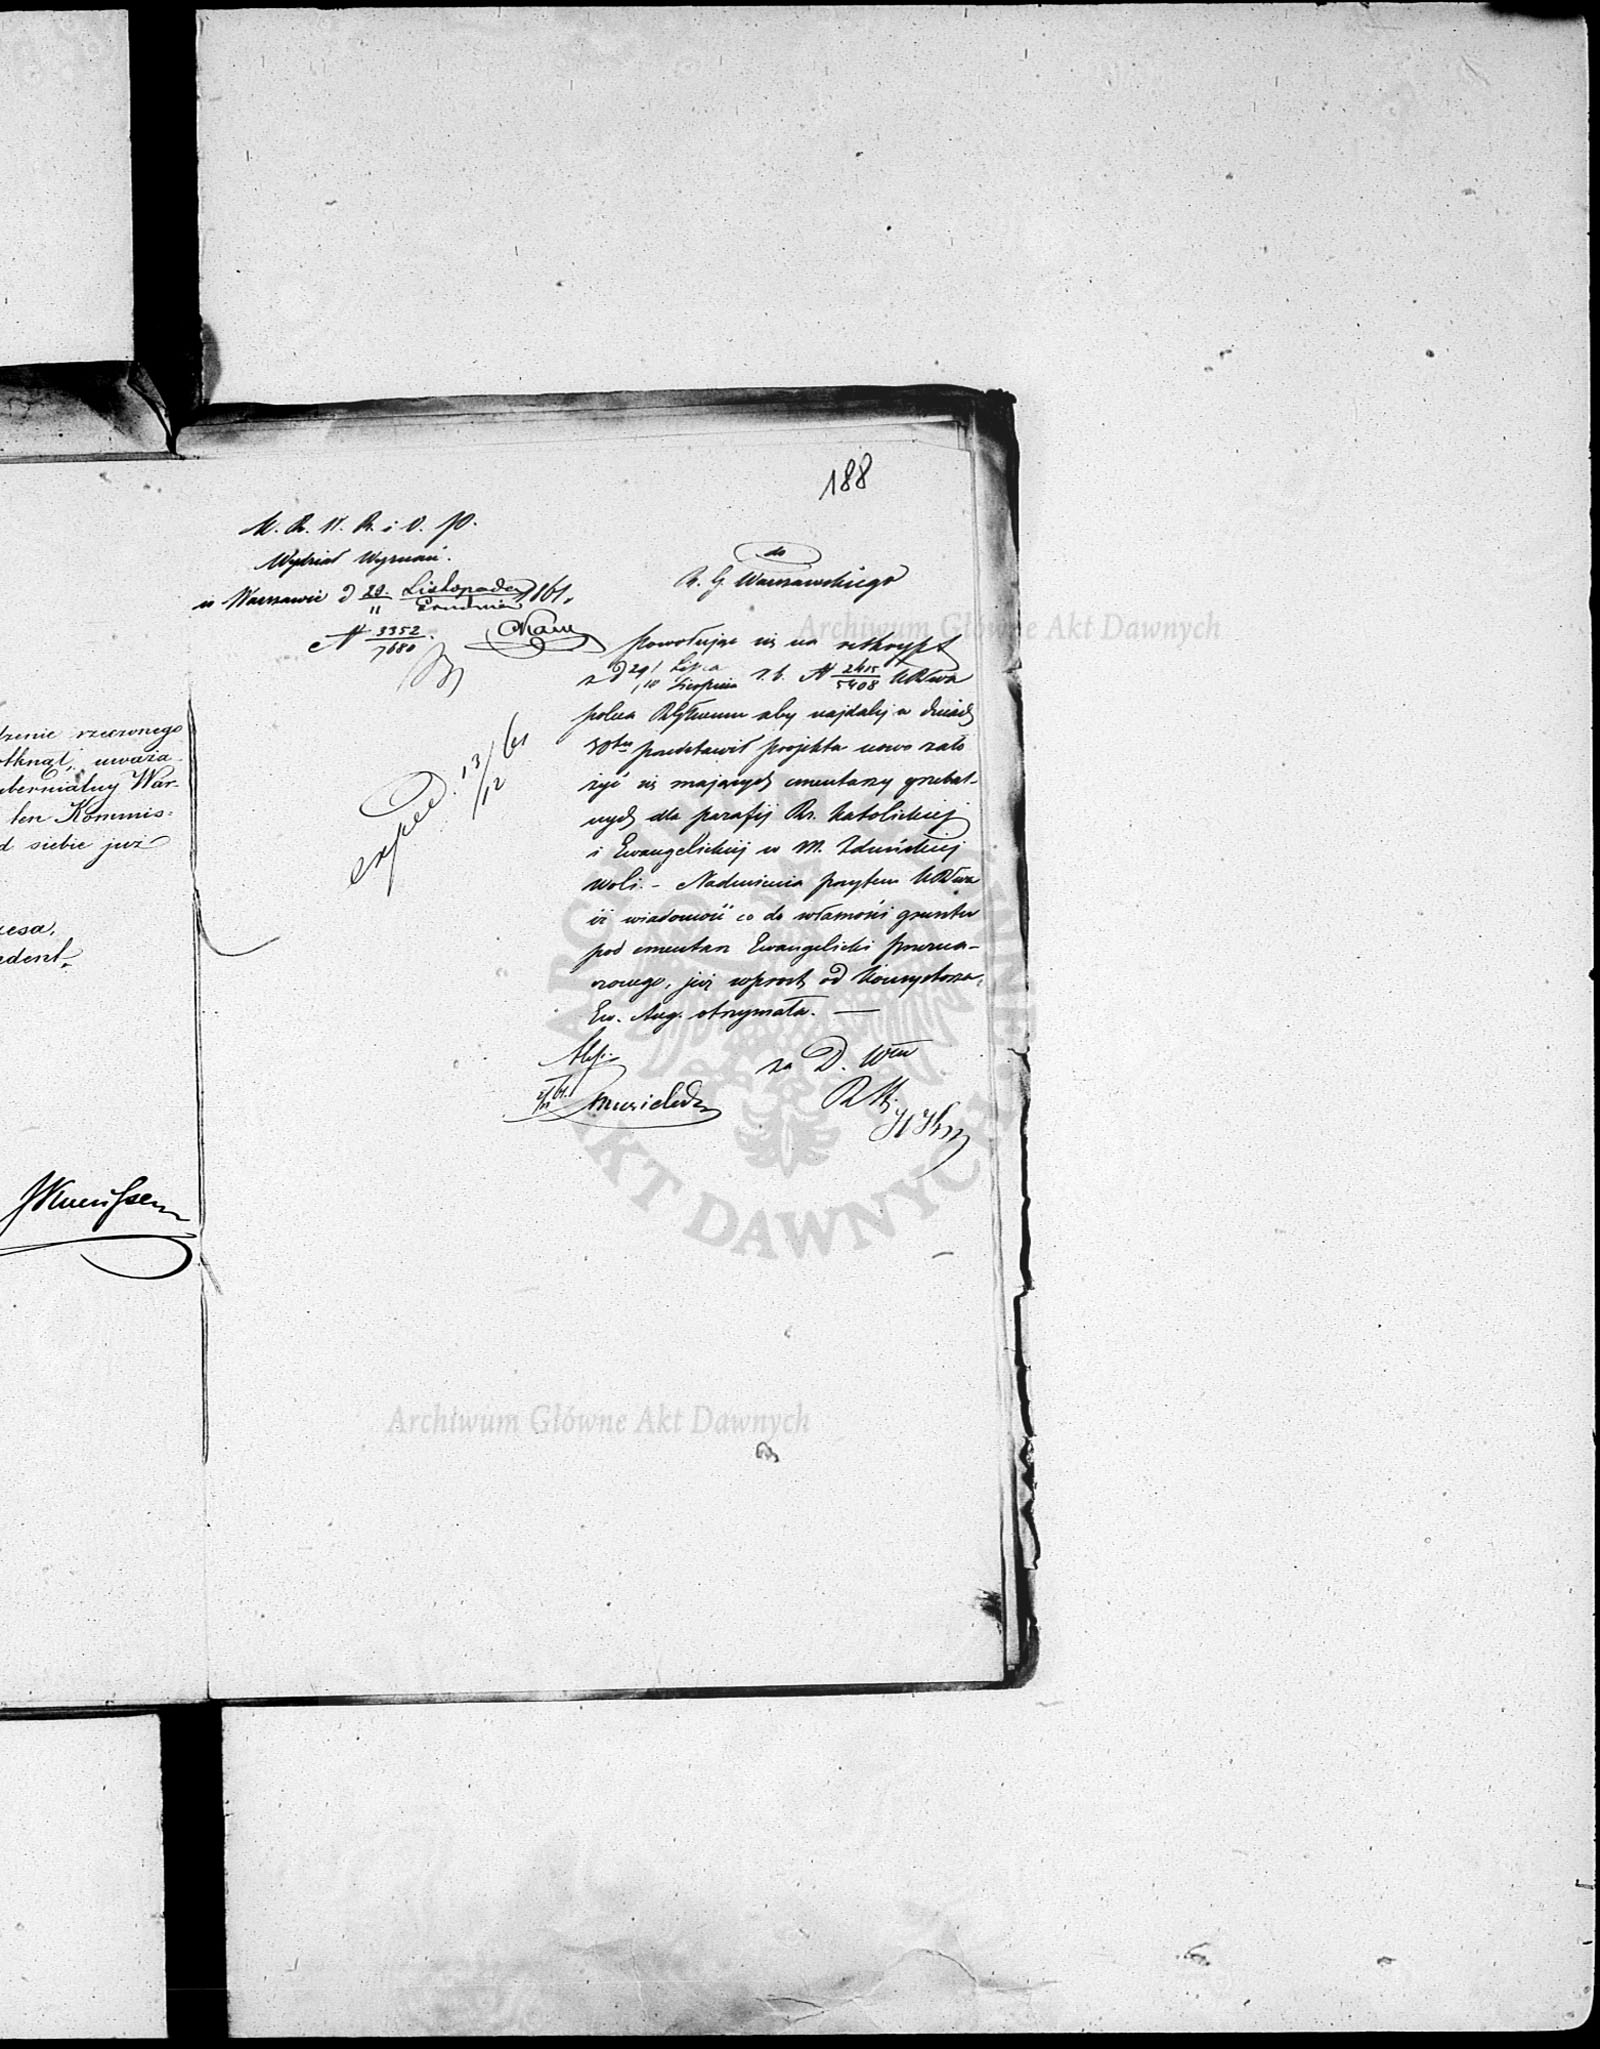 188
K. R. W. R. i O. P.
Wydział Wyznań.
w Warszawie d 29. Listopada 1861.
11 Grudnia
N 3352
7680
exped. 13/12 61
do
R. G. Warszawskiego
Powołując się na reskrypt
z d 29 Lipca r. b. N 2415 KRwa
10 Sierpnia 5408
poleca Rządowi aby najdalej w dniach
30tu przedstawił projekta nowo zało
żyć się mających cmentarzy grzebal-
nych dla parafij Rz. Katolickiej
i Ewangelickiej w M. Zduńskiej
Woli. – Nadmienia przytem KRwa
iż wiadomość co do własności gruntu
pod cmentarz Ewangelicki przezna-
czonego, już wprost od Konsystorza
Ew. Aug. otrzymała. —
za D. Włu
dzenie rzeczonego
otknąć, uważa
ubernialny War-
ten Kommis-
d siebie już
zesa,
zydent,
Archiwum Główne Akt Dawnych
Archiwum Główne Akt Dawnych
AKT DAWNYCH